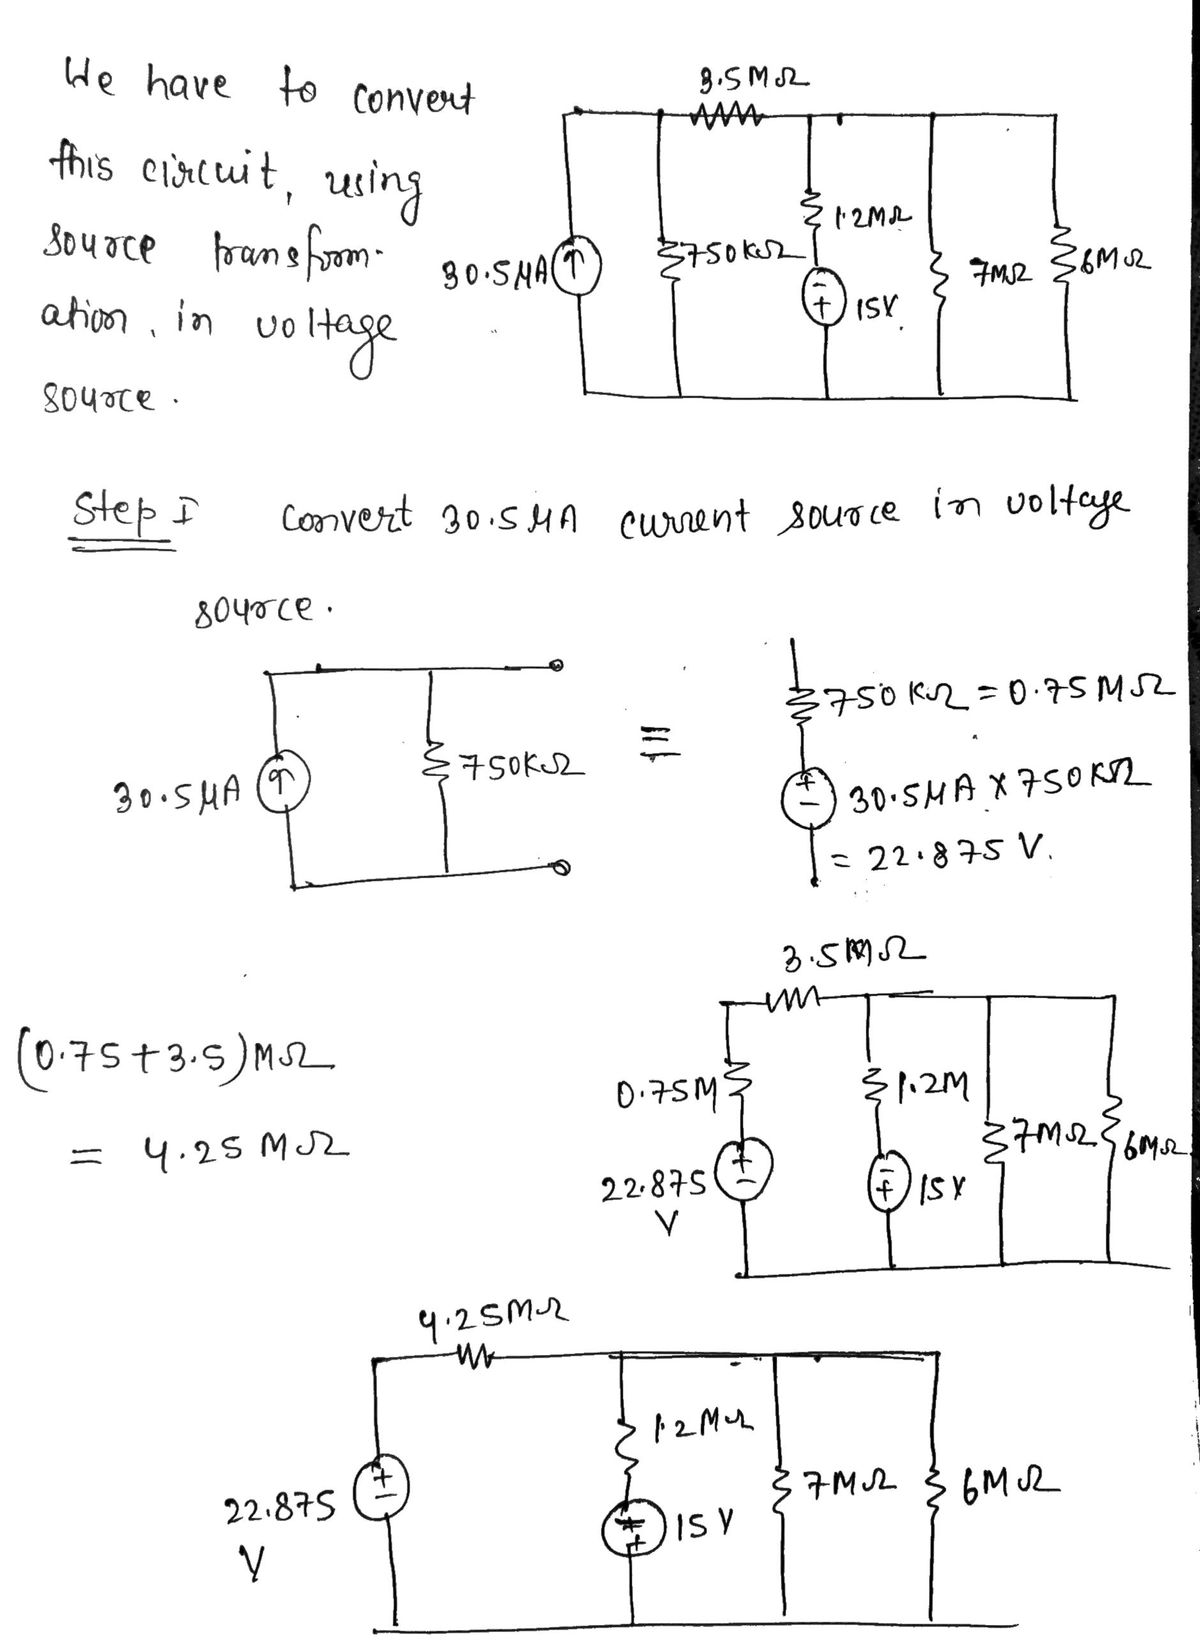 We have to convert
this circuit, using
source transform-
ation, in voltage
source.
3.5MΩ
30.5μA
750kΩ
1.2MΩ
15V
7MΩ
6MΩ
Step I Convert 30.5μA current source in voltage
source.
30.5μA
750KΩ
≡
750KΩ = 0.75MΩ
30.5μA X 750KΩ
= 22.875 V.
(0.75+3.5)MΩ
= 4.25 MΩ
3.5MΩ
0.75M
22.875
V
1.2M
15V
7MΩ
6MΩ
4.25MΩ
22.875
V
1.2MΩ
15V
7MΩ
6MΩ